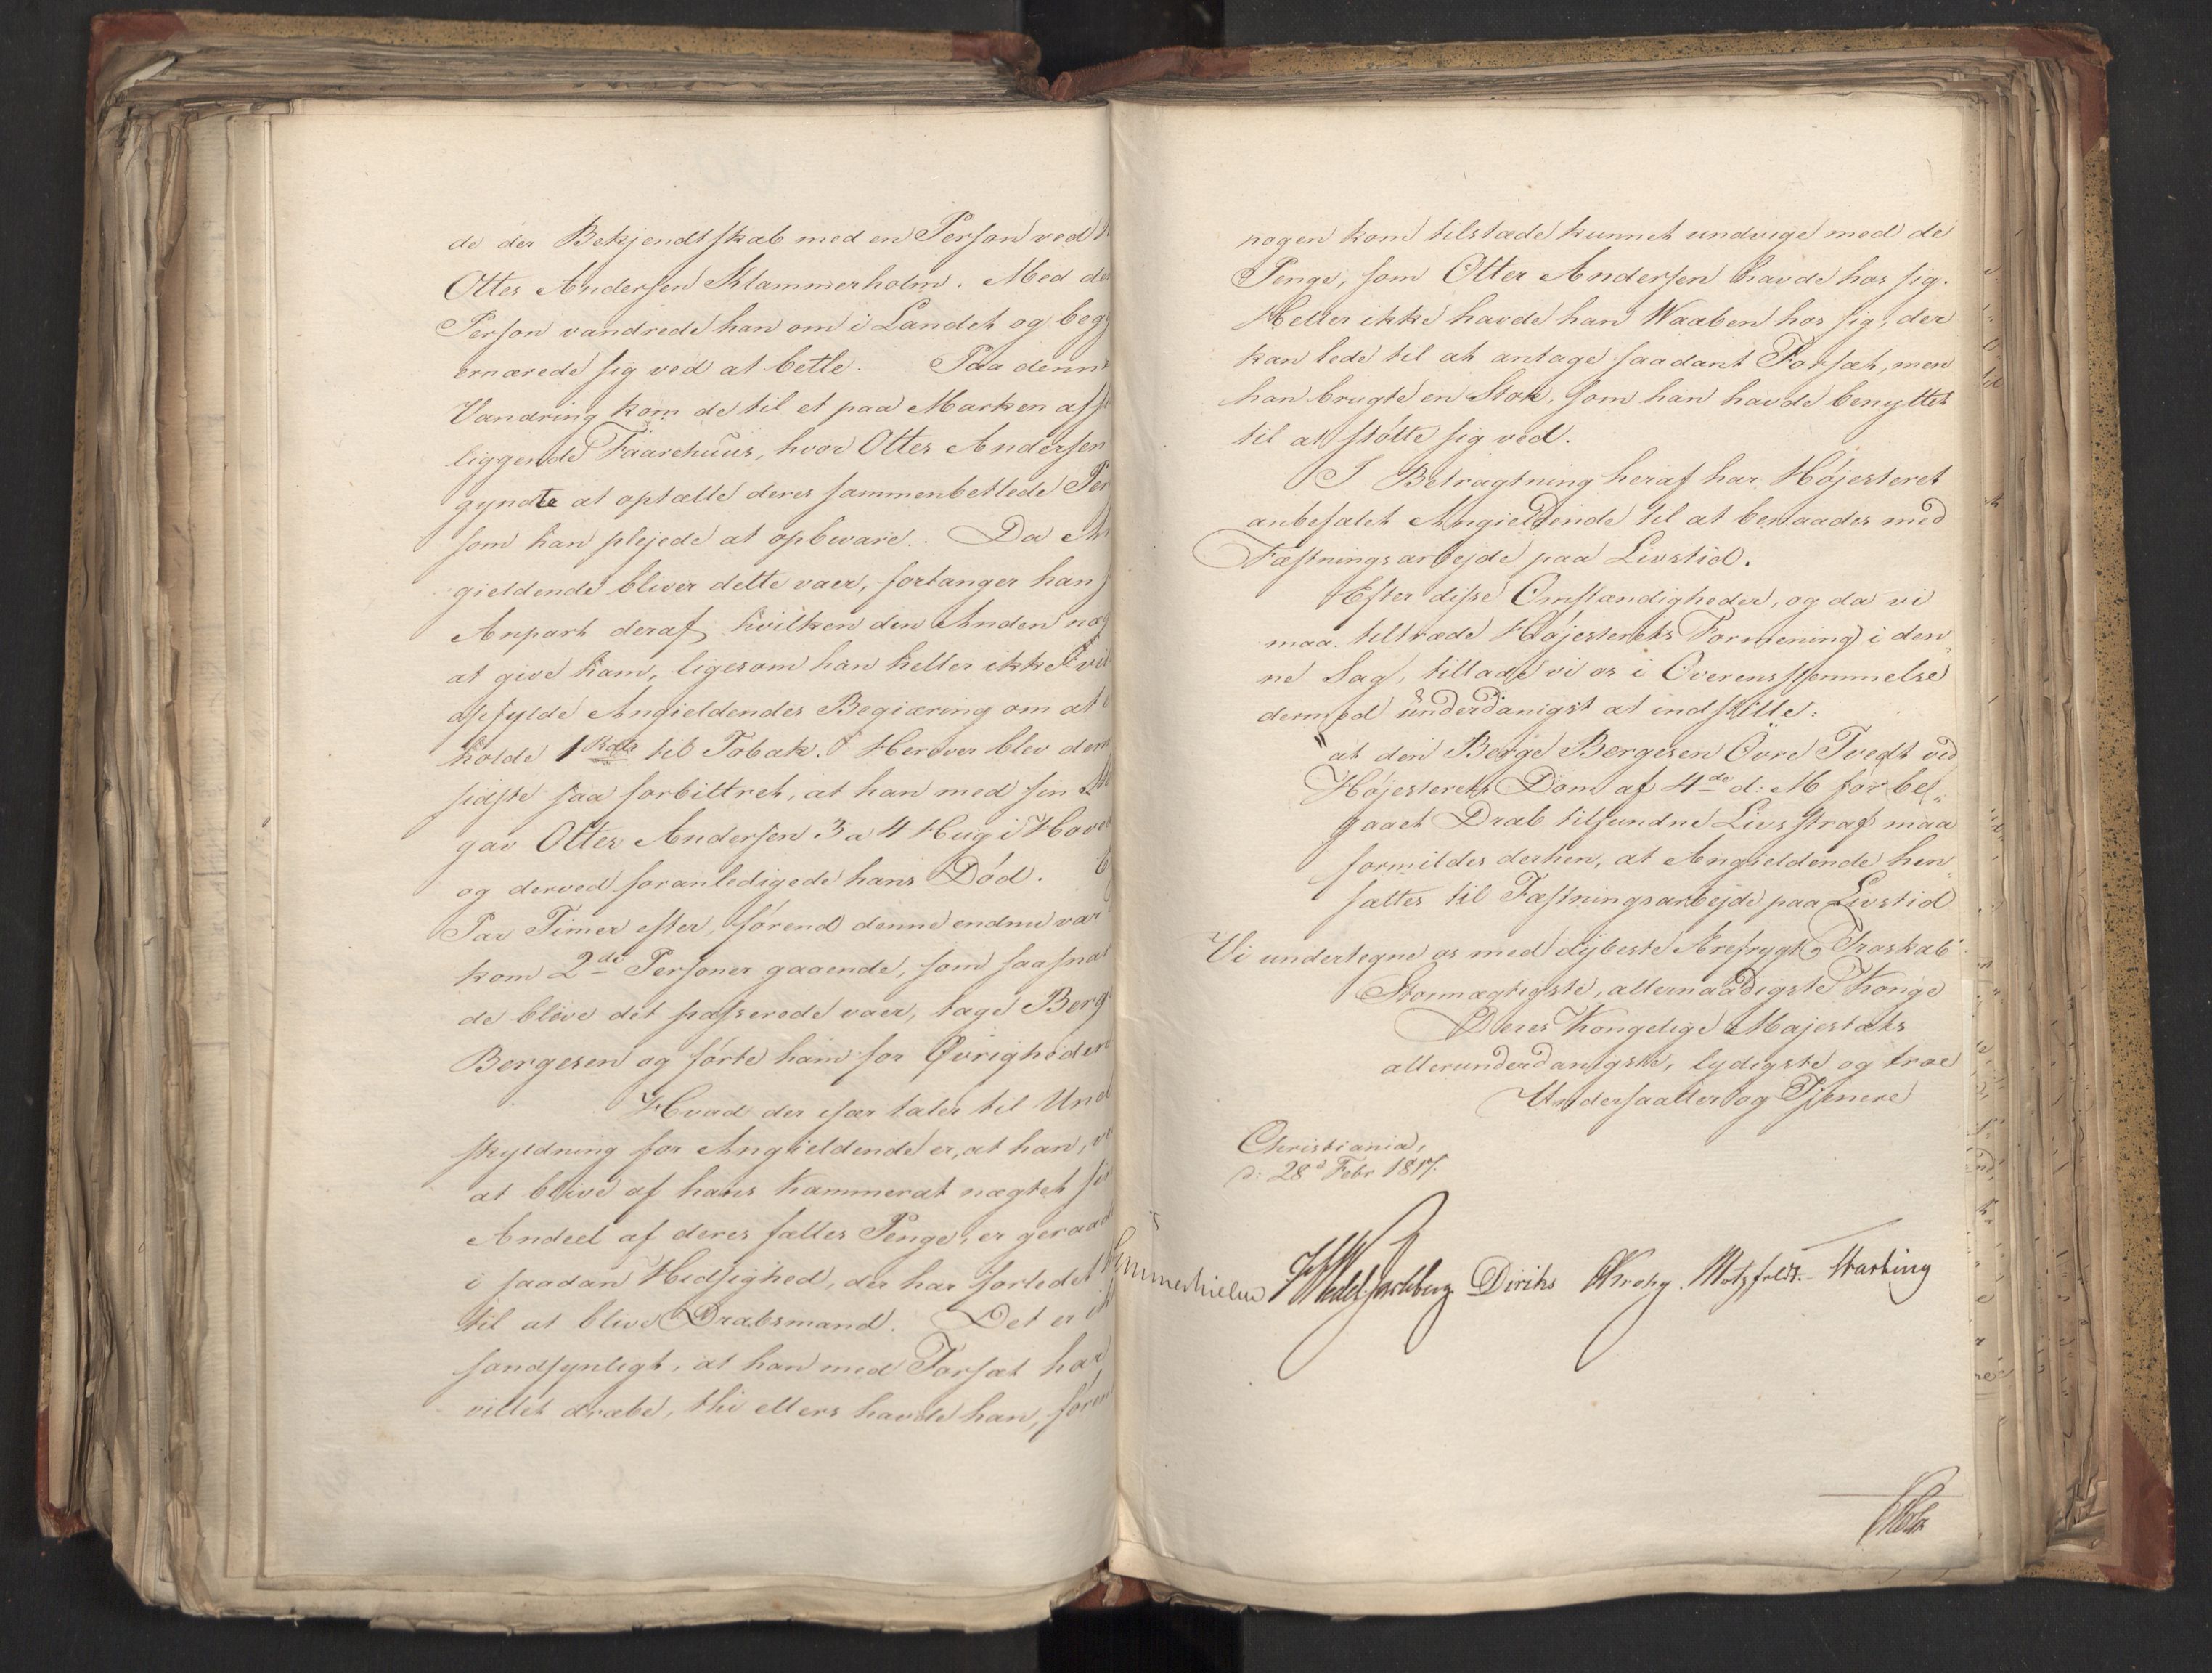 de der Bekjendtskab med en Person ved
Otter Andersen Klammerholm. Med de
Person vandrede han om i Landet og beg
ernærede sig ved at betle. Paa denn
Vandring kom de til et paa Marken afsi
liggende Faarehuus, hvor Otter Andersen
gyndte at optælle deres sammenbetlede Pen
som han plejede at opbevare. Da An
gieldende bliver dette vaer, forlanger han
Anpart deraf, hvilken den Anden næg
at give ham, ligesom han heller ikke vil
opfylde Angieldendes Begiæring om at
holde 1 Rdlr til Tobak. Herover blev den
sidste saa forbittret, at han med sin
gav Otter Andersen 3 a 4 Hug i Hove
og derved foranledigede hans Död. E
Par Timer efter, förend denne endnu var
kom 2de Personer gaaende, som saasnar
de bleve det passerede vaer, tage Berge
Bergesen og förte ham for Övrigheden
Hvad der især taler til Und
skyldning for Angieldende er, at han, ve
at blive af hans Kammerat nægtet sin
Andeel af deres fælles Penge, er geraad
i saadan Hidsighed, der har forledet
til at blive Drabsmand. Det er ik
sandsynligt, at han med Forsæt har
villet dræbe, thi ellers havde han, fören
nogen kom tilstæde kunnet undvige med de
Penge, som Otter Andersen havde hos sig.
Heller ikke havde han Waaben hos sig, der
kan lede til at antage saadant Forsæt, men
han brugte en Stok, som han havde benyttet
til at stötte sig ved.
I Betragtning heraf har Höjesteret
anbefalet Angieldende til at benaades med
Fæstningsarbejde paa Livstid.
Efter disse Omstændigheder, og da vi
maa tiltræde Höjesterets Formening i den„
ne Sag, tillade vi os i Overensstemmelse
dermed underdanigst at indstille:
"at den Berge Bergesen Övre Tvedt ved
Höjesterets Dom af 4de d: M for be„
gaaet Drab tilfundne Livsstraf maa
formildes derhen, at Angieldende hen„
sættes til Fæstningsarbejde paa Livstid
Vi undertegne os med dybeste Ærefrygt Troskab
Stormægtigste, allernaadigste Konge
Deres Kongelige Majestæts
allerunderdanigste, lydigste og troe
Undersaatter og Tjenere
Christiania,
d: 28d Febr 1817.
Hummerhielm HWedel Jarlsberg Diriks Krohg. Motzfeldt. Mariboe